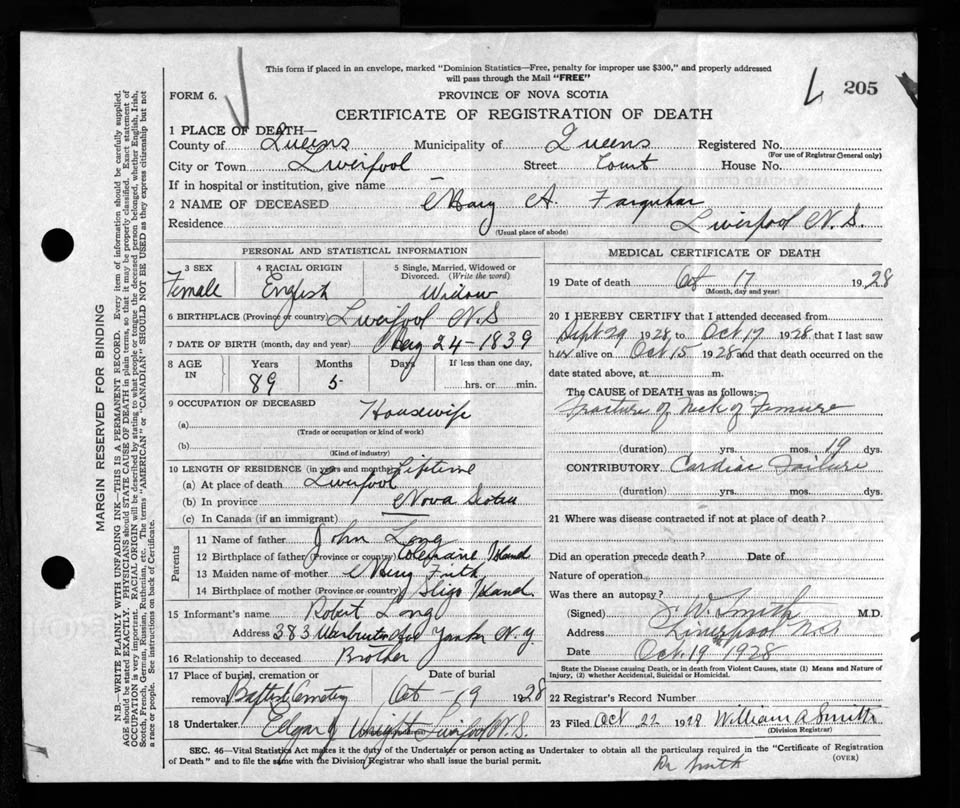 This form if placed in an envelope, marked "Dominion Statistics—Free, penalty for improper use $300," and properly addressed
will pass through the Mail "FREE"
205
FORM 6.
PROVINCE OF NOVA SCOTIA
CERTIFICATE OF REGISTRATION OF DEATH
1 PLACE OF DEATH—
County of Queens Municipality of Queens Registered No.
(For use of Registrar General only)
City or Town Liverpool Street Court House No.
If in hospital or institution, give name —
2 NAME OF DECEASED Mary A. Farquhar
Residence Liverpool N.S.
(Usual place of abode)
PERSONAL AND STATISTICAL INFORMATION
3 SEX 4 RACIAL ORIGIN 5 Single, Married, Widowed or Divorced. (Write the word)
Female English Widow
6 BIRTHPLACE (Province or country) Liverpool N.S
7 DATE OF BIRTH (month, day and year) 24-1839
8 AGE IN Years Months Days If less than one day,
89 5 hrs. or min.
9 OCCUPATION OF DECEASED Housewife
(a)
(Trade or occupation or kind of work)
(b)
(Kind of industry)
10 LENGTH OF RESIDENCE (in years and months) Lifetime
(a) At place of death Liverpool
(b) In province Nova Scotia
(c) In Canada (if an immigrant) —
Parents
11 Name of father John Long
12 Birthplace of father (Province or country) Island
13 Maiden name of mother Frith
14 Birthplace of mother (Province or country) Sligo Island
15 Informant's name Robert Long
Address 383 N.Y.
16 Relationship to deceased Brother
17 Place of burial, cremation or removal Date of burial
Baptist Cemetery Oct - 19 1928
18 Undertaker Edgar J Wright Liverpool N.S.
MEDICAL CERTIFICATE OF DEATH
19 Date of death Oct 17 1928
(Month, day and year)
20 I HEREBY CERTIFY that I attended deceased from
Sept 29 1928 to Oct 17 1928 that I last saw
her alive on Oct 15 1928 and that death occurred on the
date stated above, at m.
The CAUSE OF DEATH was as follows:
Fracture of Neck of Femure
(duration) yrs. mos. 19 dys.
CONTRIBUTORY Cardiac Failure
(duration) yrs. mos. dys.
21 Where was disease contracted if not at place of death?
Did an operation precede death? Date of
Nature of operation
Was there an autopsy?
(Signed) J W. Smith M.D.
Address Liverpool N.S
Date Oct. 19th 1928
State the Disease causing Death, or in death from Violent Causes, state (1) Means and Nature of
Injury, (2) whether Accidental, Suicidal or Homicidal.
22 Registrar's Record Number
23 Filed Oct 22 1928 William A Smith
(Division Registrar)
SEC. 46—Vital Statistics Act makes it the duty of the Undertaker or person acting as Undertaker to obtain all the particulars required in the "Certificate of Registration
of Death" and to file the same with the Division Registrar who shall issue the burial permit.
(OVER)
Dr Smith
MARGIN RESERVED FOR BINDING
N.B.—WRITE PLAINLY WITH UNFADING INK—THIS IS A PERMANENT RECORD. Every item of information should be carefully supplied.
AGE should be stated EXACTLY. PHYSICIANS should STATE CAUSE OF DEATH in plain terms, so that it may be properly classified. Exact statement of
OCCUPATION is very important. RACIAL ORIGIN will be described by stating to what people or tongue the deceased person belonged, whether English, Irish,
Scotch, French, German, Russian, Ruthenian, etc. The terms "AMERICAN" or "CANADIAN" SHOULD NOT BE USED as they express citizenship but not
a race or people. See instructions on back of Certificate.